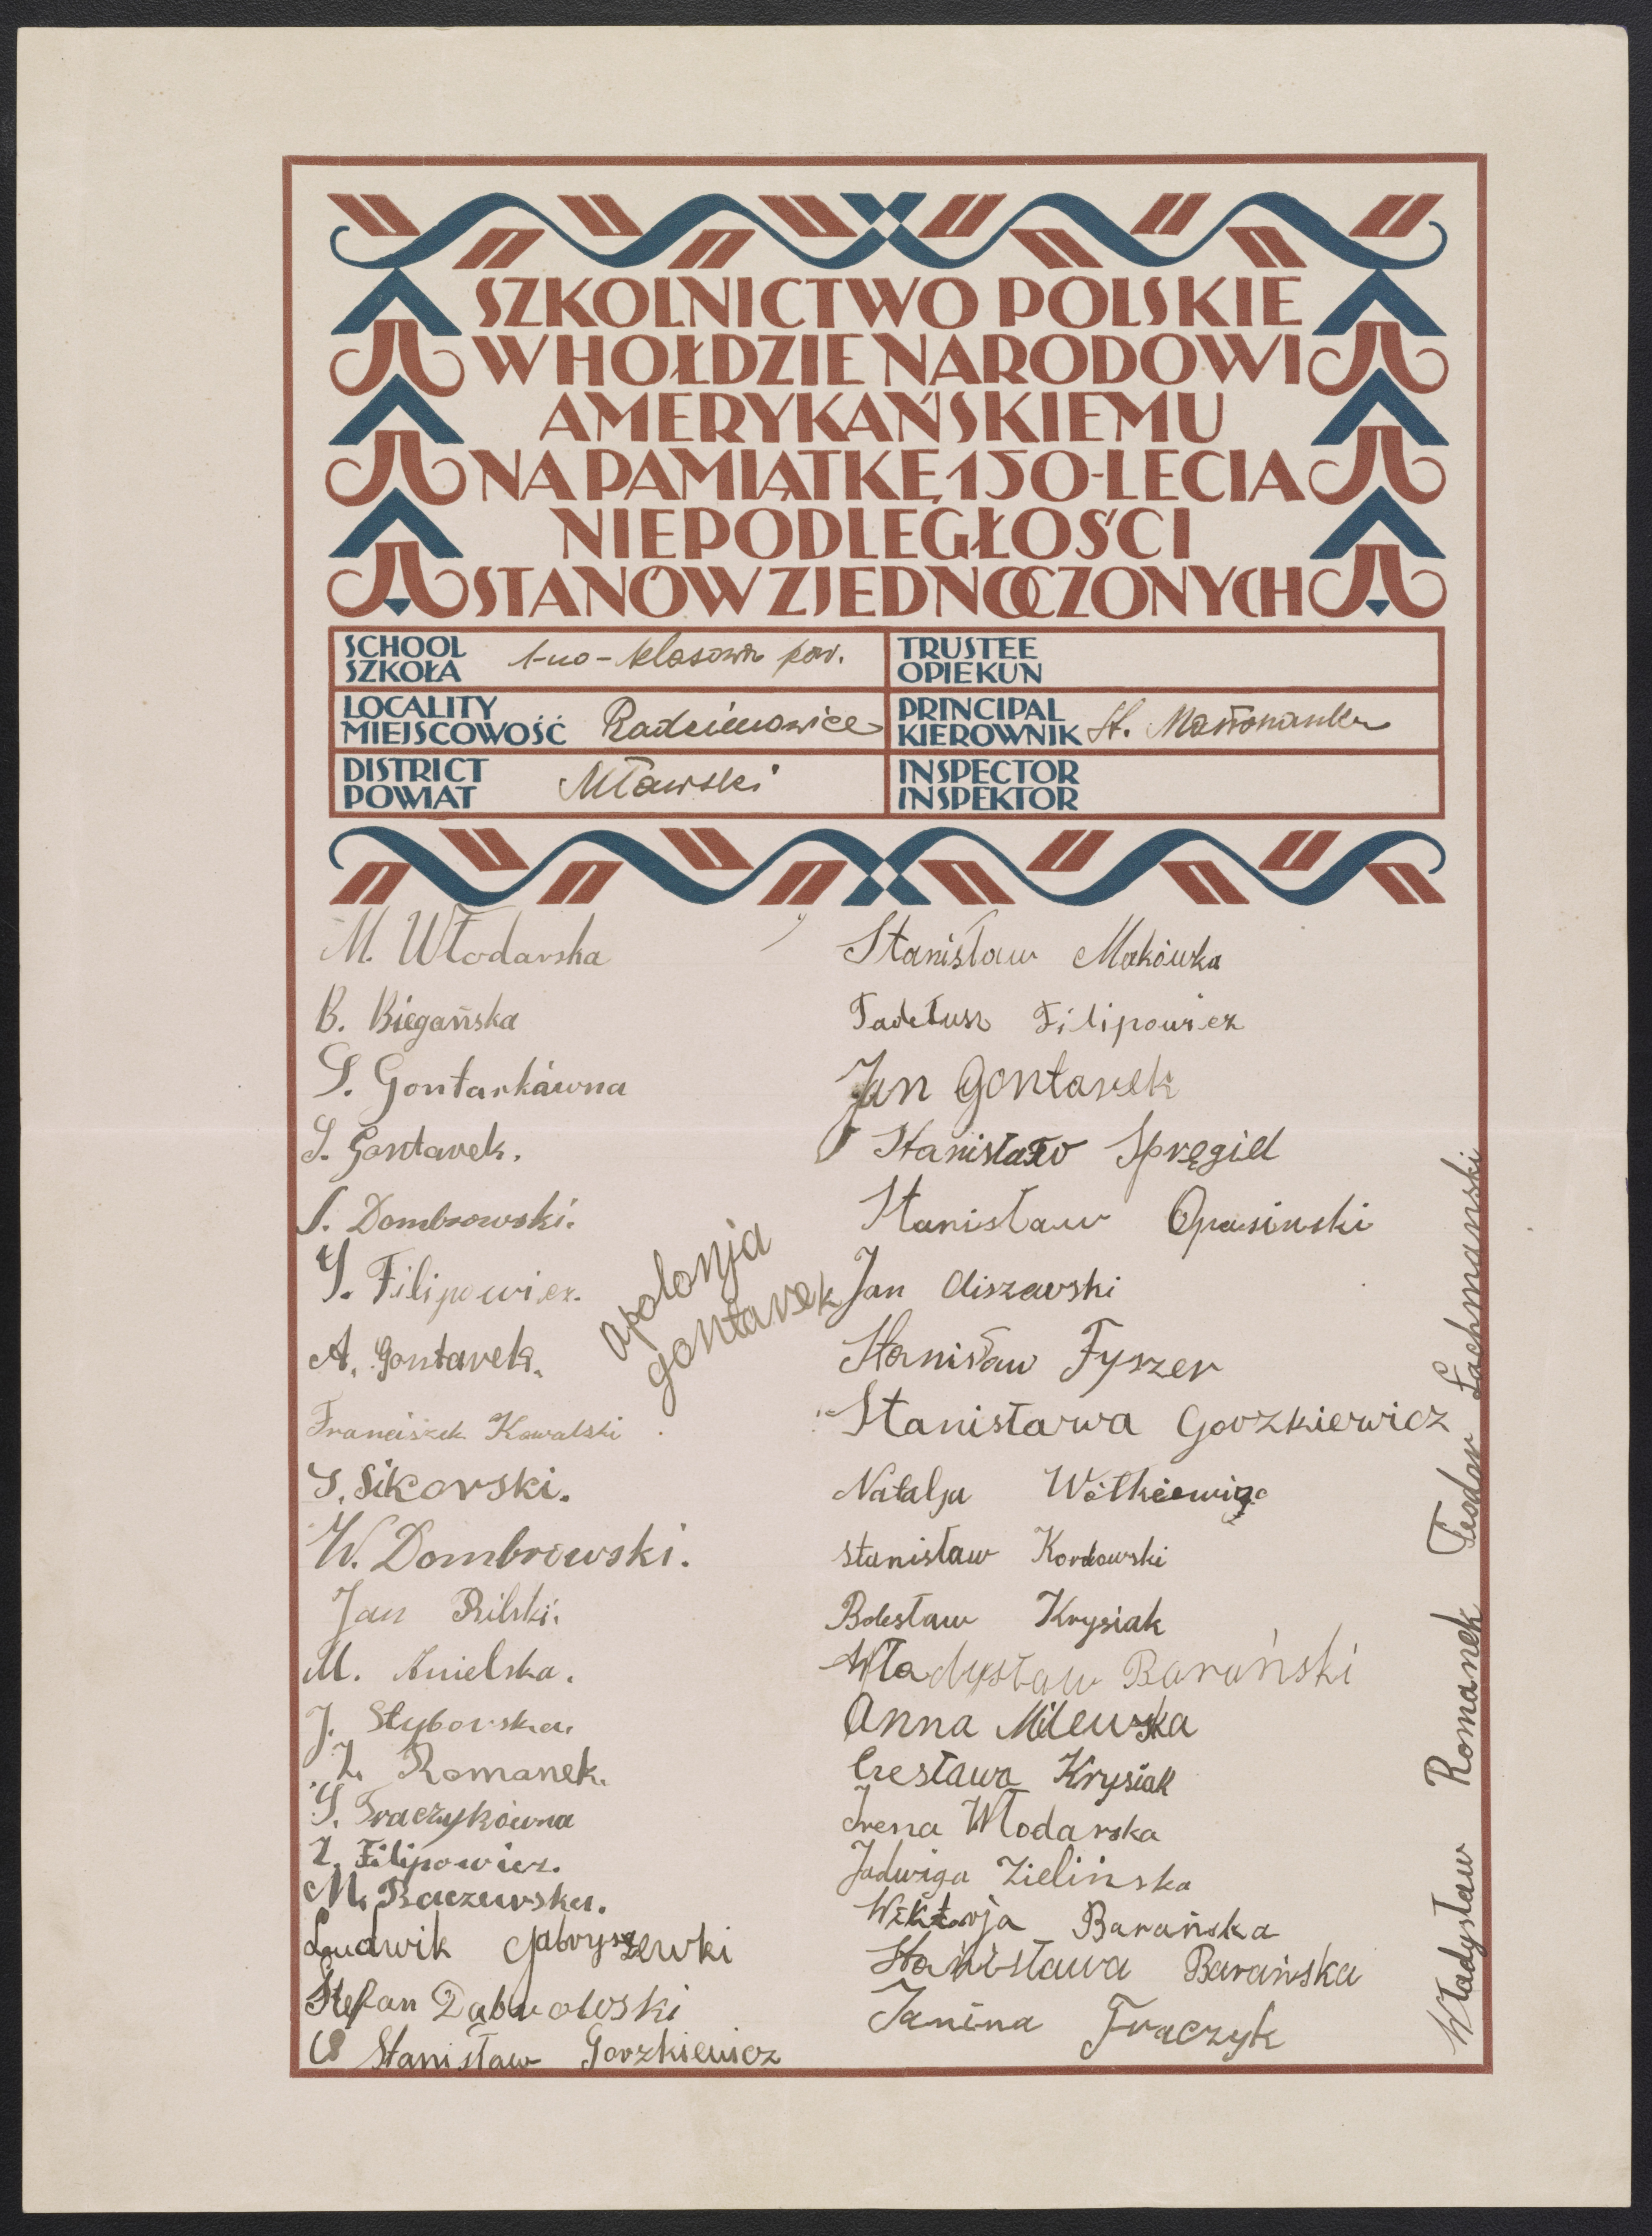 SZKOLNICTWO POLSKIE
W HOŁDZIE NARODOWI
AMERYKAŃSKIEMU
NA PAMIĄTKĘ 150-LECIA
NIEPODLEGŁOŚCI
STANÓW ZJEDNOCZONYCH
SCHOOL
SZKOŁA
1-no-klasowa pow.
TRUSTEE
OPIEKUN
LOCALITY
MIEJSCOWOŚĆ
Radzimowice
PRINCIPAL
KIEROWNIK
St.
DISTRICT
POWIAT
Mławski
INSPECTOR
INSPEKTOR
M. Włodarska
B. Biegańska
S. Gontarkówna
S. Gontarek.
S. Dombrowski.
S. Filipowicz.
A. Gontarek.
Franciszek Kowalski
S. Sikorski.
W. Dombrowski.
Jan Rilski.
M. Anielska.
J. Styborska.
Z. Romanek.
S. Traczykówna
Z. Filipowicz.
M. Raczewska.
Ludwik Gabryszewki
Stefan Dąbrowski
Stanisław Gorzkiewicz
Apolonja
Gontarek
Stanisław Makówka
Tadeusz Filipowicz
Jan Gontarek
Stanisław Spręgiel
Stanisław Opasinski
Jan Oliszewski
Stanisław Fyszer
Stanisława Gorzkiewicz
Natalja Wótkiewicz
Stanisław Kordowski
Bolesław Krysiak
Władysław Barański
Anna Milewska
Czesława Krysiak
Irena Włodarska
Jadwiga Zielińska
Wiktorja Barańska
Stanisława Barańska
Janina Fraczyk
Władysław Romanek Teodor Lachmański